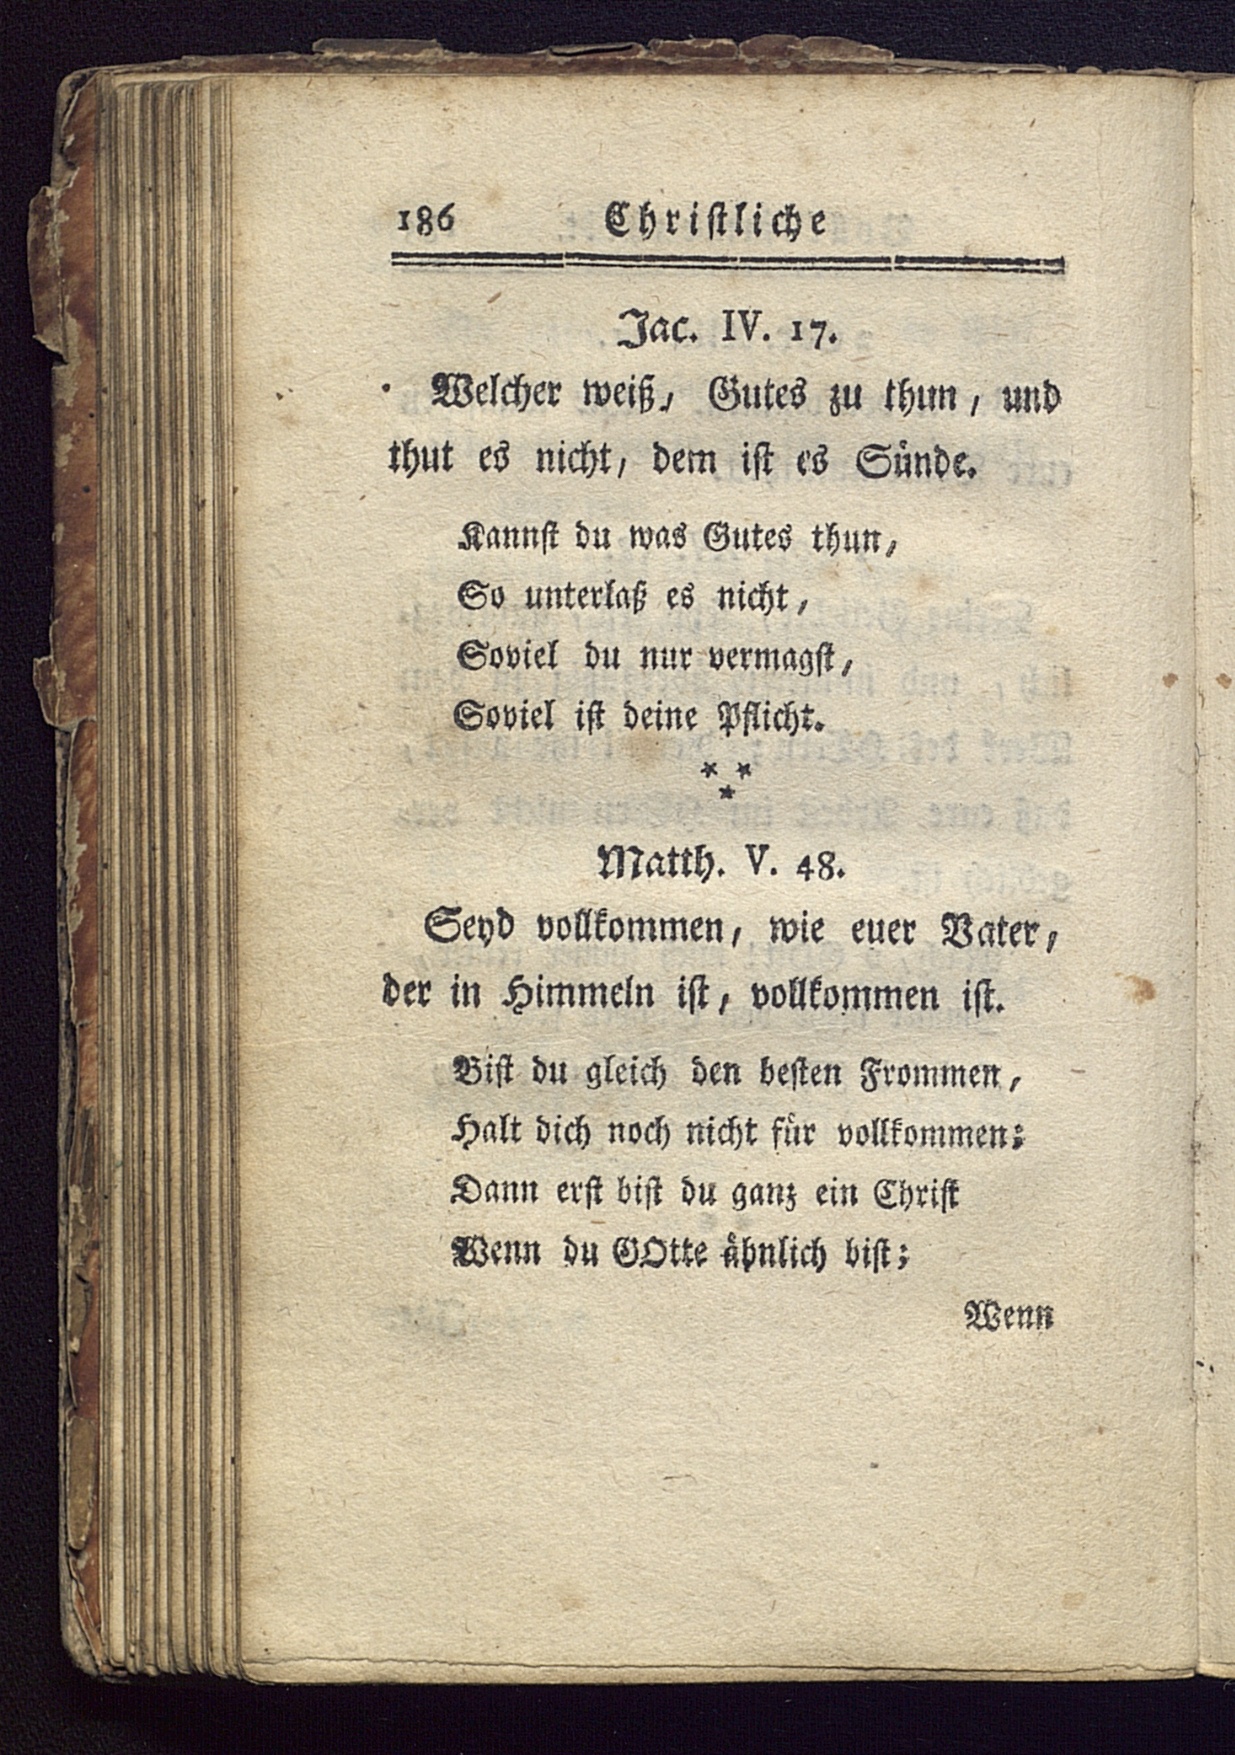 186 Christliche
Jac. IV. 17.
Welcher weiß, Gutes zu thun, und
thut es nicht, dem ist es Sünde.
Kannst du was Gutes thun,
So unterlaß es nicht,
Soviel du nur vermagst,
Soviel ist deine Pflicht.
* *
*
Matth. V. 48.
Seyd vollkommen, wie euer Vater,
der in Himmeln ist, vollkommen ist.
Bist du gleich den besten Frommen,
Halt dich noch nicht für vollkommen:
Dann erst bist du ganz ein Christ
Wenn du GOtte ähnlich bist;
Wenn